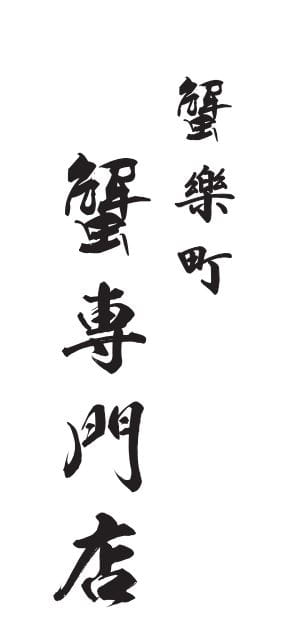 蟹樂町
蟹専門店